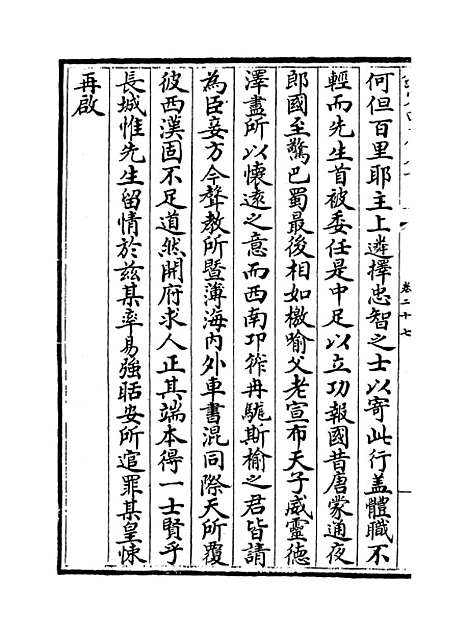 何但百里耶主上遴擇忠智之士以寄此行盖體職不
輕而先生首被委任是中足以立功報國昔唐蒙通夜
郎國至驚巴蜀最後相如檄喻父老宣布天子威靈德
澤盡所以懷遠之意而西南卭筰冉駹斯榆之君皆請
為臣妾方今聲教所暨薄海内外車書混同際天所覆
彼西漢固不足道然開府求人正其端本得一士賢乎
長城惟先生留情於兹某率易強聒安所逭罪某皇悚
再啟
卷二十七